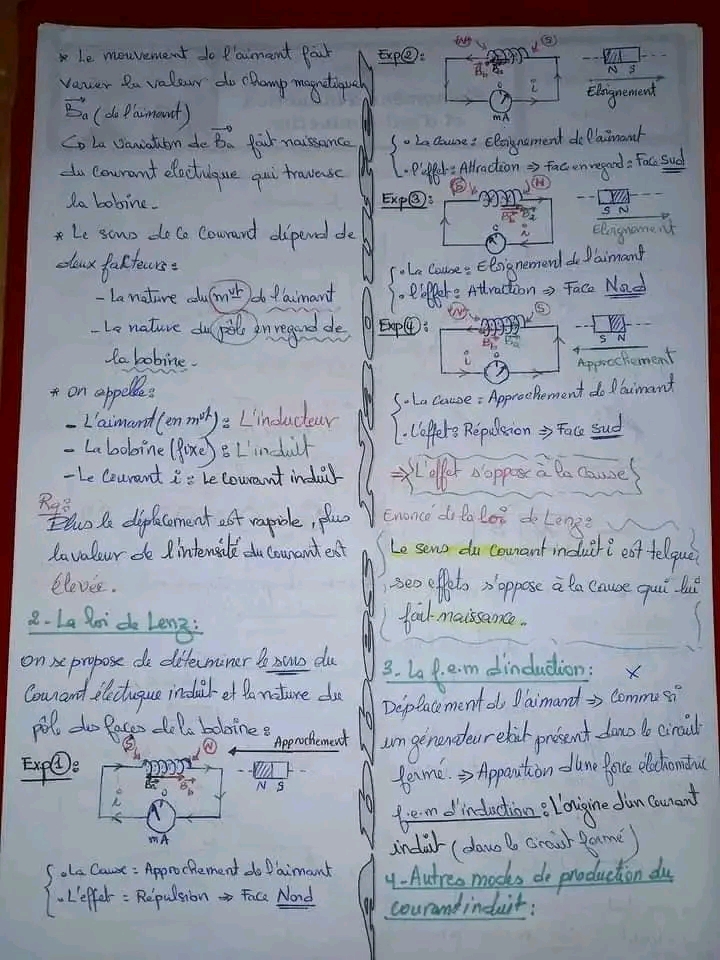 * Le mouvement de l'aimant fait
varier la valeur du champ magnétique
Ba (de l'aimant)
↳ La variation de Ba fait naissance
du courant électrique qui traverse
la bobine.
* Le sens de ce courant dépend de
deux facteurs :
- La nature du mvt de l'aimant
- La nature du pôle en regard de
la bobine.
* on appelle :
- L'aimant (en mvt) : L'inducteur
- La bobine (fixe) : L'induit
- Le courant i : Le courant induit
Rq :
Plus le déplacement est rapide, plus
la valeur de l'intensité du courant est
élevée.
2 - La loi de Lenz :
On se propose de déterminer le sens du
Courant électrique induit et la nature du
pôle des faces de la bobine :
Exp① : S N Approchement
Ba Bb N S
i
mA
. La Cause = Approchement de l'aimant
. L'effet = Répulsion ⇒ Face Nord
Exp② : N S
Bb Ba N S
i Eloignement
mA
. La Cause : Eloignement de l'aimant
. l'effet : Attraction ⇒ Face en regard : Face Sud
Exp③ : S N
Bb Ba S N
i Eloignement
. La Cause : Eloignement de l'aimant
. l'effet : Attraction ⇒ Face Nord
Exp④ : N S
Bb Ba S N
i Approchement
. La Cause : Approchement de l'aimant
. L'effet : Répulsion ⇒ Face Sud
⇒ L'effet s'oppose à la Cause
Enoncé de la loi de Lenz :
Le sens du courant induit i est telque
ses effets s'oppose à la cause qui lui
fait naissance.
3. La f.e.m d'induction : x
Déplacement de l'aimant ⇒ Comme si
un générateur etait présent dans le circuit
fermé. ⇒ Apparition d'une force électrometric
f.e.m d'induction : L'origine d'un Courant
induit (dans le circuit fermé)
4 - Autres modes de production du
courant induit :